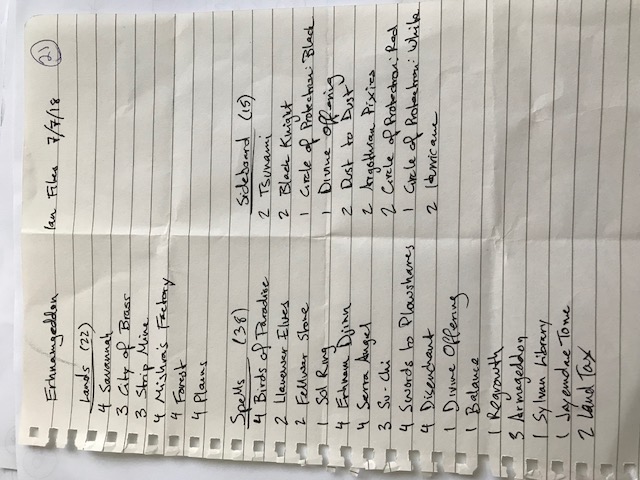 Erhnamgeddon Ian Files 7/7/18 21
Lands (22)
4 Savannah
3 City of Brass
3 Strip Mine
4 Mishra's Factory
4 Forest
4 Plains
Spells (38)
4 Birds of Paradise
2 Llanowar Elves
2 Fellwar Stone
1 Sol Ring
4 Erhnam Djinn
4 Serra Angel
3 Su-Chi
4 Swords to Plowshares
4 Disenchant
1 Divine Offering
1 Balance
1 Regrowth
3 Armageddon
1 Sylvan Library
1 Jayemdae Tome
2 Land Tax
Sideboard (15)
2 Tsunami
2 Black Knight
1 Circle of Protection: Black
1 Divine Offering
2 Dust to Dust
2 Argothian Pixies
2 Circle of Protection: Red
1 Circle of Protection: White
2 Hurricane